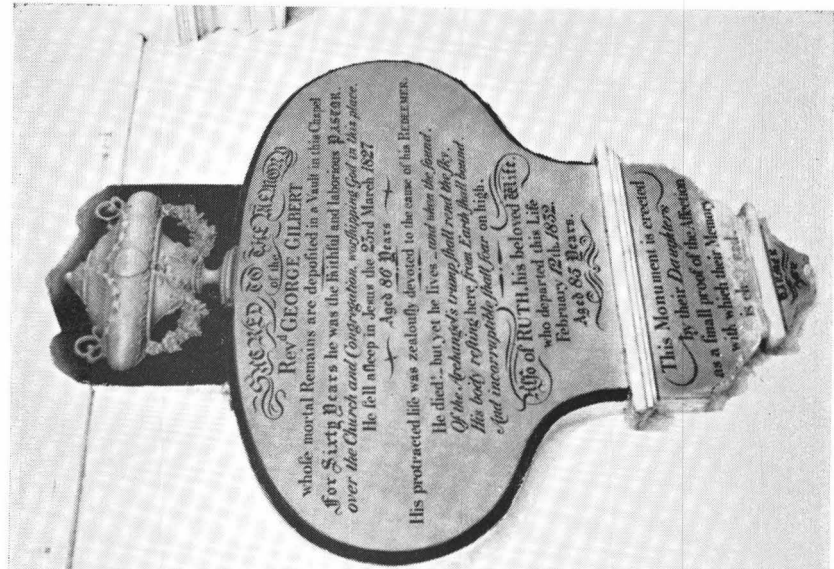 SACRED TO THE MEMORY
of the
Revd. GEORGE GILBERT
whose mortal Remains are deposited in a Vault in this Chapel
For Sixty Years he was the faithful and laborious PASTOR
over the Church and Congregation, worshipping God in this place.
He fell asleep in Jesus the 23rd March 1827
Aged 86 Years
His protracted life was zealously devoted to the cause of his REDEEMER.
He died:- but yet he lives, and when the sound,
Of the Archangel's trump shall rend the sky,
His body resting here from Earth shall bound.
And incorruptible shall soar on high.
Also of RUTH, his beloved Wife.
who departed this Life
February 12th. 1832.
Aged 85 Years.
This Monument is erected
by their Daughters
as a small proof of the Affection
with which their Memory
is